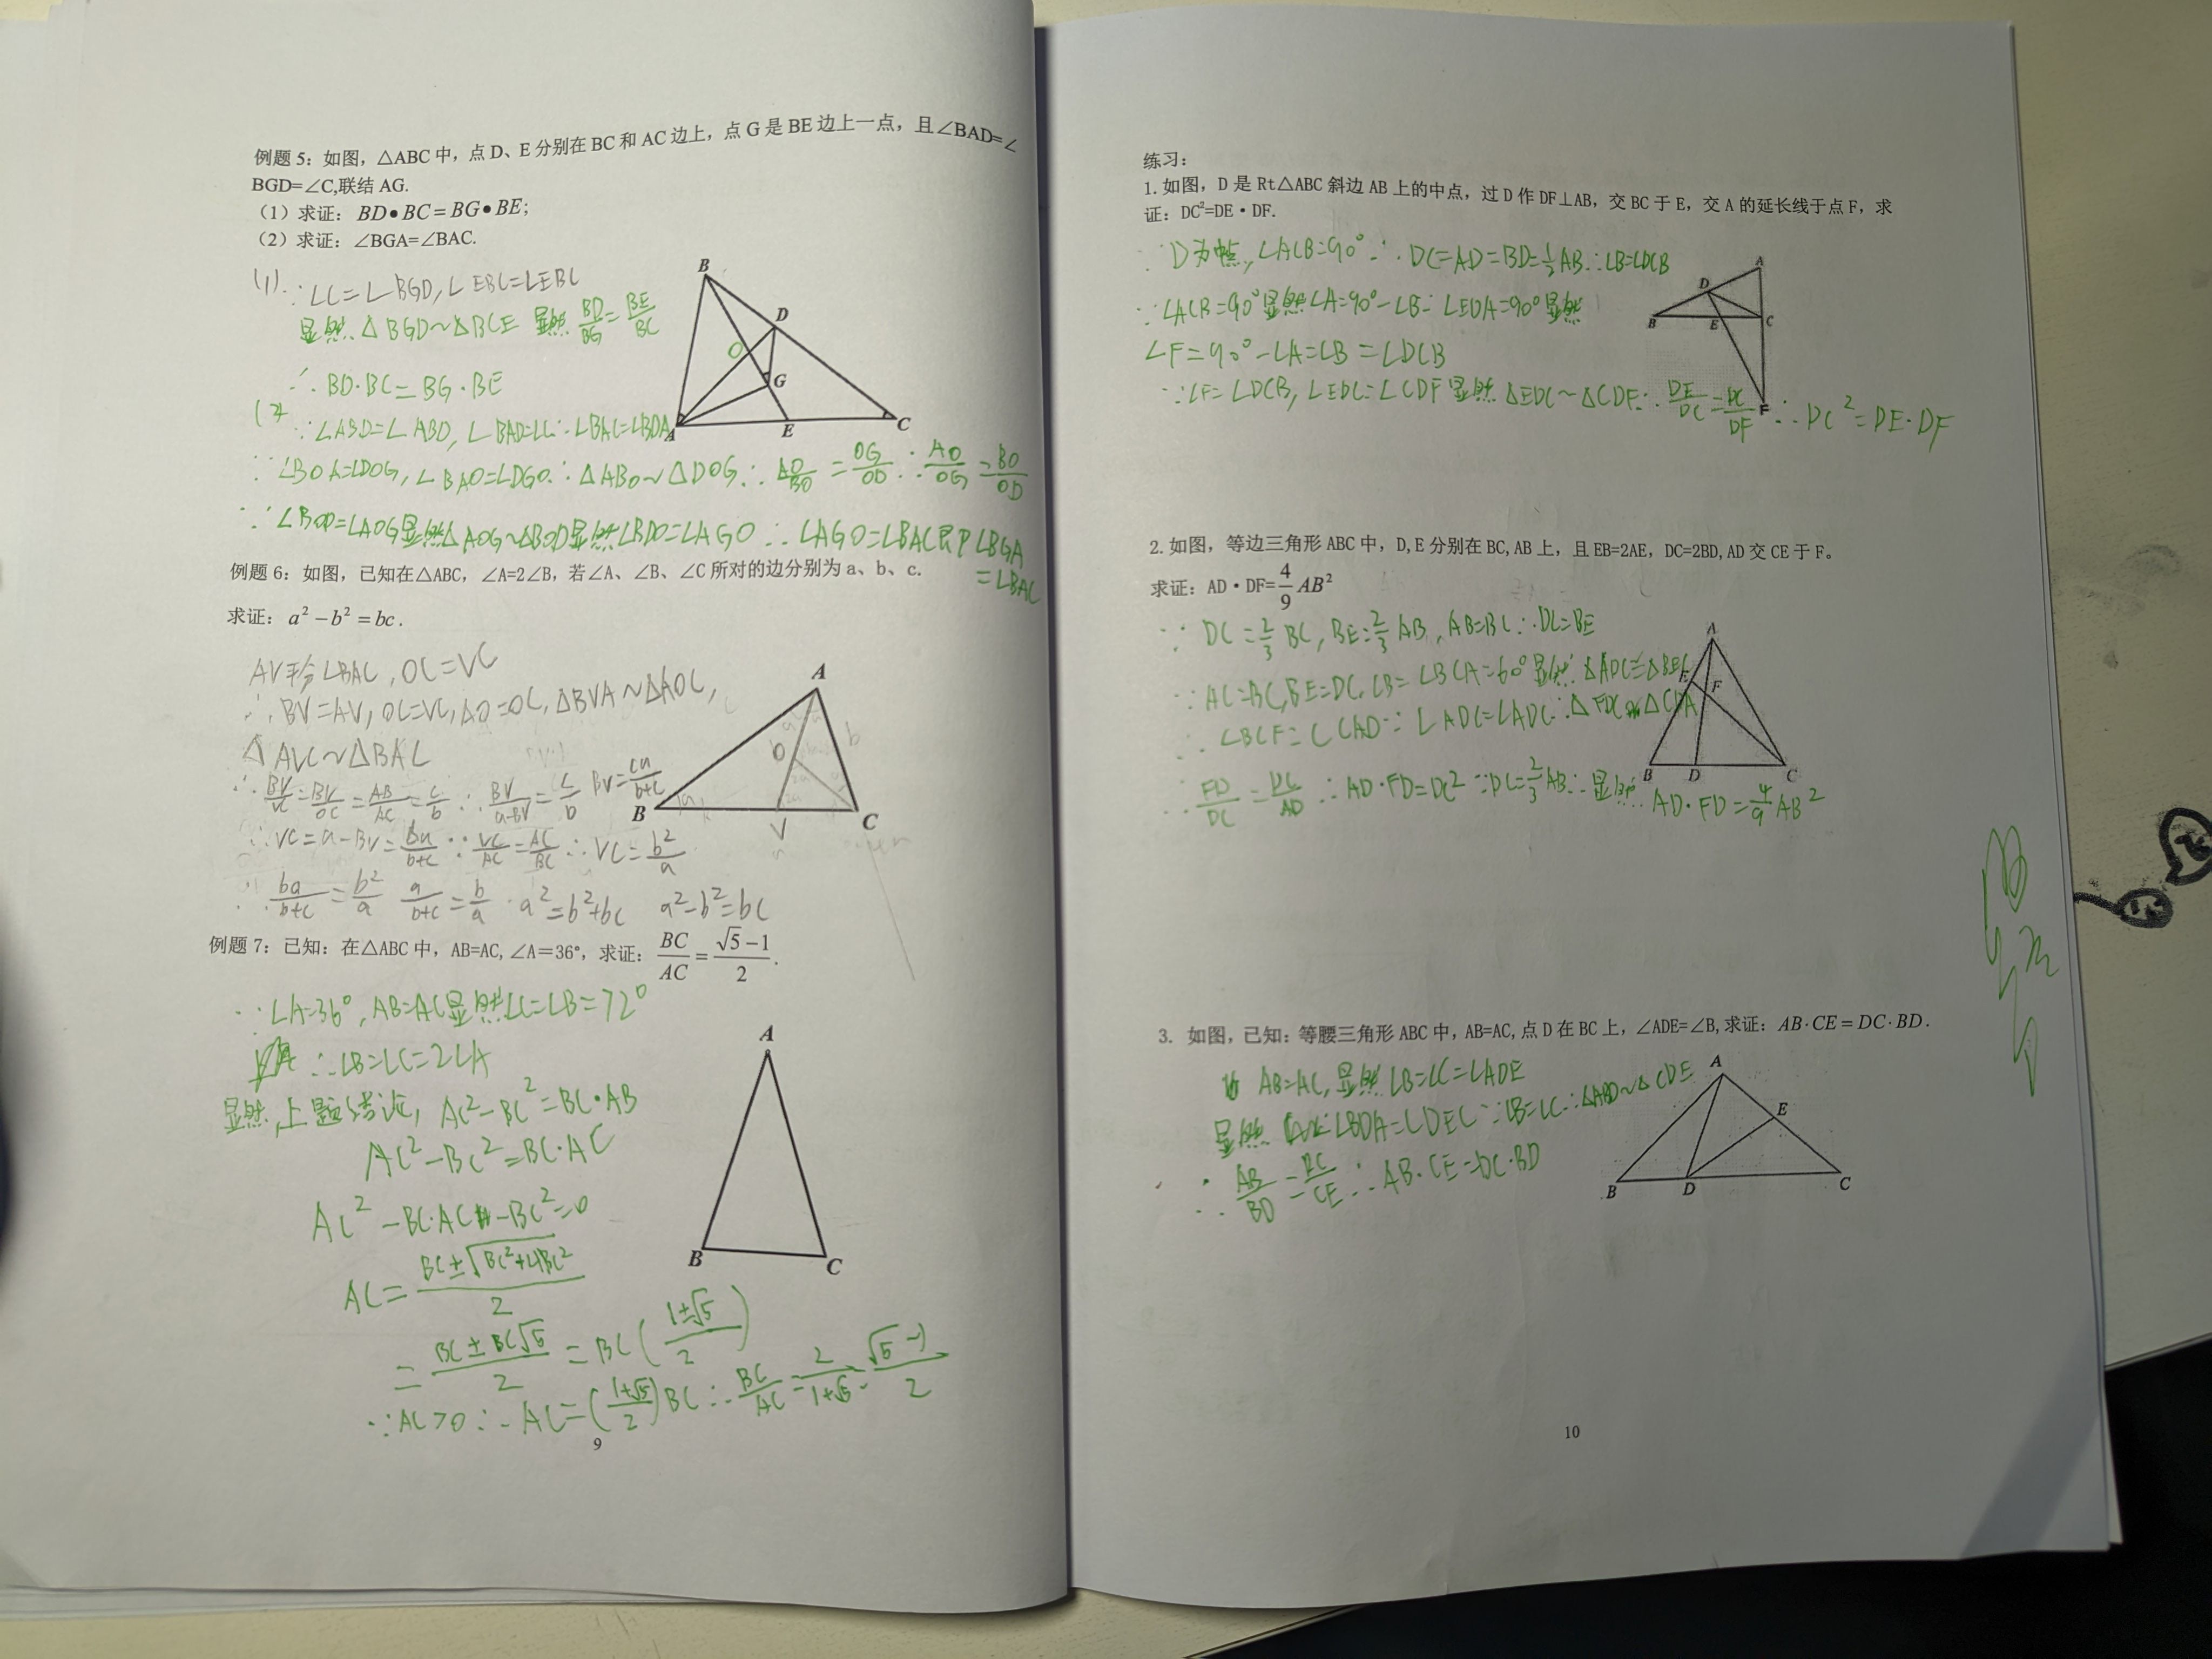 例题 5：如图，△ABC 中，点 D、E 分别在 BC 和 AC 边上，点 G 是 BE 边上一点，且∠BAD=∠
BGD=∠C,联结 AG.
（1）求证：BD•BC=BG•BE;
（2）求证：∠BGA=∠BAC.
(1) ∵∠C=∠BGD,∠EBC=∠EBC
显然 △BGD~△BCE 显然 BD/BG=BE/BC
∴ BD·BC=BG·BE
∵∠ABD=∠ABD,∠BAD=∠C∴∠BAC=∠BDA
∵∠BOA=∠DOG,∠BAO=∠DGO∴△ABO~△DOG∴AO/BO=OG/OD∴AO/OG=BO/OD
∵∠BOD=∠AOG显然△AOG~△BOD显然∠BDO=∠AGO∴∠AGO=∠BAC即∠BGA
=∠BAC
B
D
O
G
A
E
C
例题 6：如图，已知在△ABC，∠A=2∠B，若∠A、∠B、∠C 所对的边分别为 a、b、c.
求证：a²－b²＝bc．
AV平分∠BAC,OC=VC
∴BV=AV,OC=VC,AO=OC,△BVA~△AOC,
△AVC~△BAC
∴BV/VC=BV/OC=AB/AC=c/b∴BV/a-BV=c/b BV=ca/b+c
∴VC=a-BV=ba/b+c∵VC/AC=AC/BC∴VC=b²/a
∴ba/b+c=b²/a a/b+c=b/a a²=b²+bc a²-b²=bc
A
O
b
B
V
C
例题 7：已知：在△ABC 中，AB=AC,∠A＝36°，求证：BC/AC=√5－1/2.
∵∠A=36°,AB=AC显然∠C=∠B=72°
∴∠B=∠C=2∠A
显然,上题结论,AC²-BC²=BC·AB
AC²-BC²=BC·AC
AC²-BC·AC-BC²=0
AC=BC±√BC²+4BC²/2
=BC±BC√5/2=BC(1±√5/2)
∵AC>0∴AC=(1+√5/2)BC∴BC/AC=2/1+√5=√5-1/2
A
B
C
9
练习：
1.如图，D 是 Rt△ABC 斜边 AB 上的中点，过 D 作 DF⊥AB，交 BC 于 E，交 A 的延长线于点 F，求
证：DC²=DE·DF.
∵D为中点,∠ACB=90°∴DC=AD=BD=1/2AB∴∠B=∠DCB
∵∠ACB=90°显然∠A=90°-∠B∵∠EDA=90°显然
∠F=90°-∠A=∠B=∠DCB
∵∠F=∠DCB,∠EDC=∠CDF显然△EDC~△CDF∴DE/DC=DC/DF∴DC²=DE·DF
A
D
B
E
C
F
2.如图，等边三角形 ABC 中，D,E 分别在 BC,AB 上，且 EB=2AE，DC=2BD,AD 交 CE 于 F。
求证：AD·DF=4/9AB²
∵DC=2/3BC,BE=2/3AB,AB=BC∴DC=BE
∵AC=BC,BE=DC,∠B=∠BCA=60°显然△ADC≌△BEC
∴∠BCF=∠CAD∵∠ADC=∠ADC∴△FDC~△CDA
∴FD/DC=DC/AD∴AD·FD=DC²∵DC=2/3AB∴显然AD·FD=4/9AB²
A
E
F
B
D
C
3. 如图，已知：等腰三角形 ABC 中，AB=AC,点 D 在 BC 上，∠ADE=∠B,求证：AB·CE=DC·BD．
AB=AC,显然∠B=∠C=∠ADE
显然∠BDA=∠DEC∵∠B=∠C∴△ABD~△CDE
∴AB/BD=DC/CE∴AB·CE=DC·BD
A
E
B
D
C
10